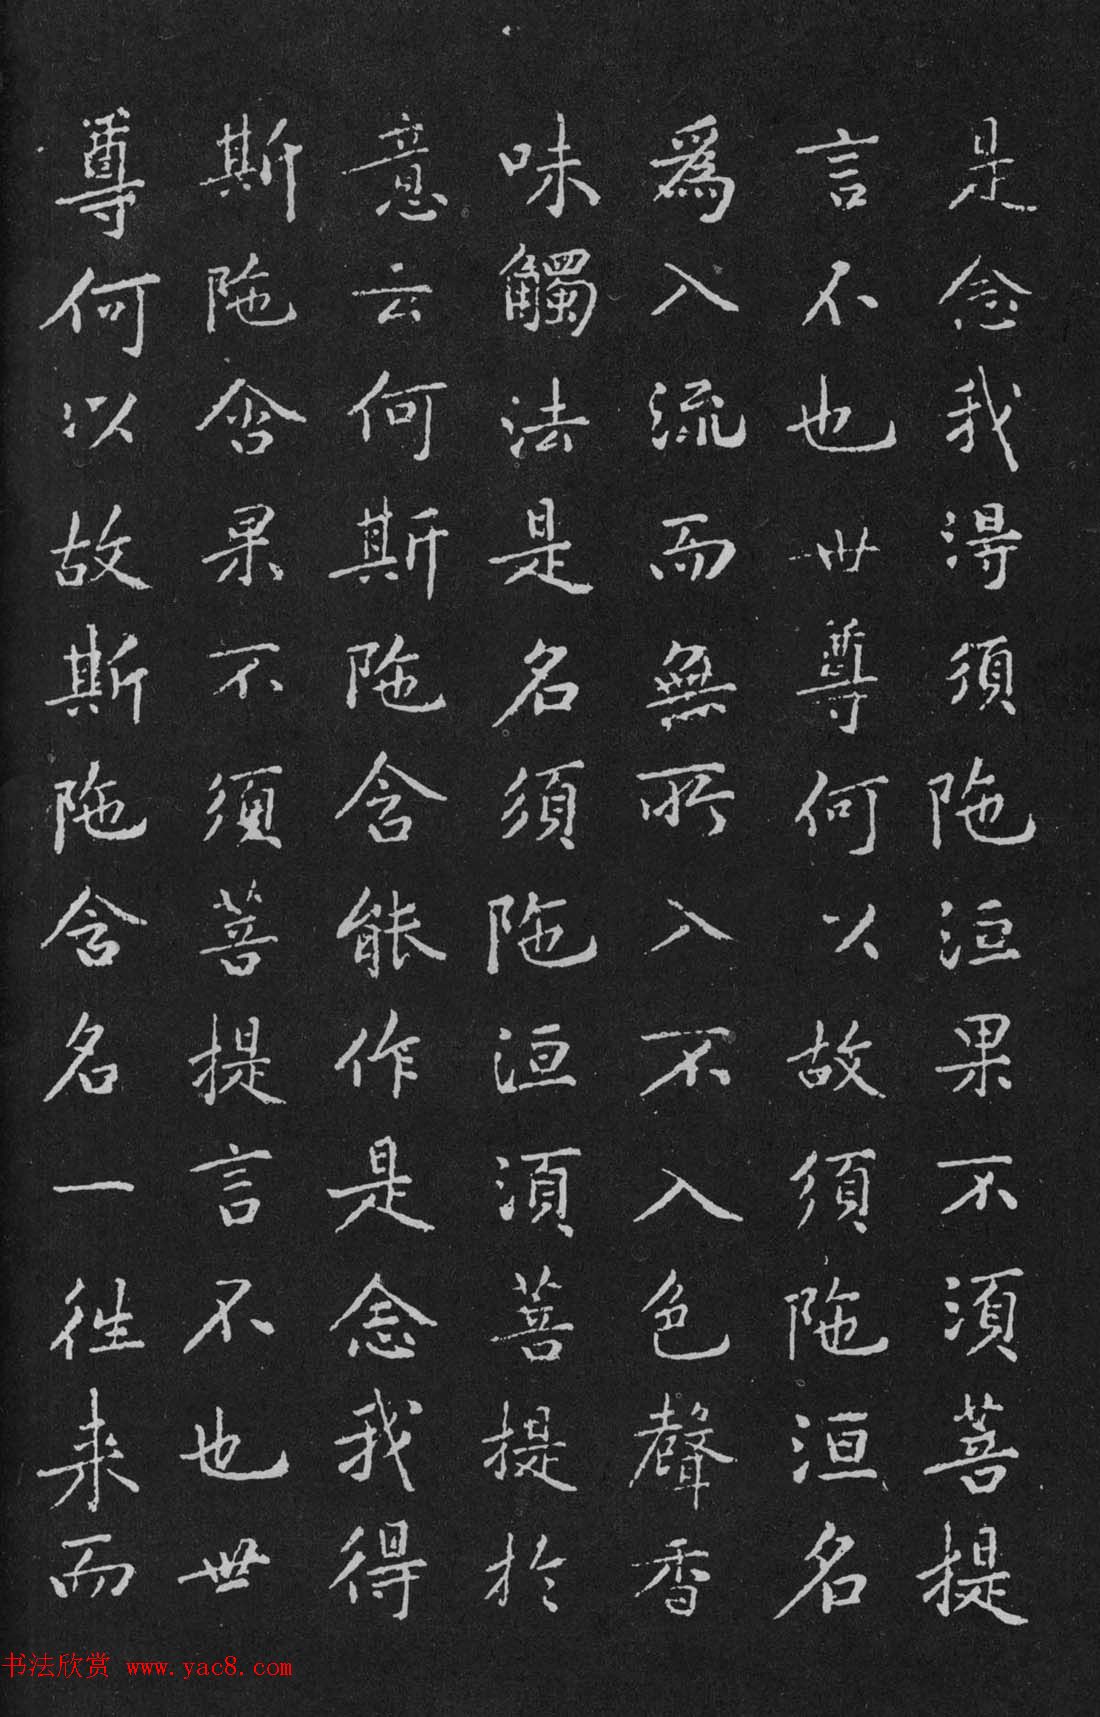 是念我得須陁洹果不須菩提
言不也世尊何以故須陁洹名
為入流而無所入不入色聲香
味觸法是名須陁洹須菩提於
意云何斯陁含能作是念我得
斯陁含果不須菩提言不也世
尊何以故斯陁含名一徃来而
书法欣赏 www.yac8.com